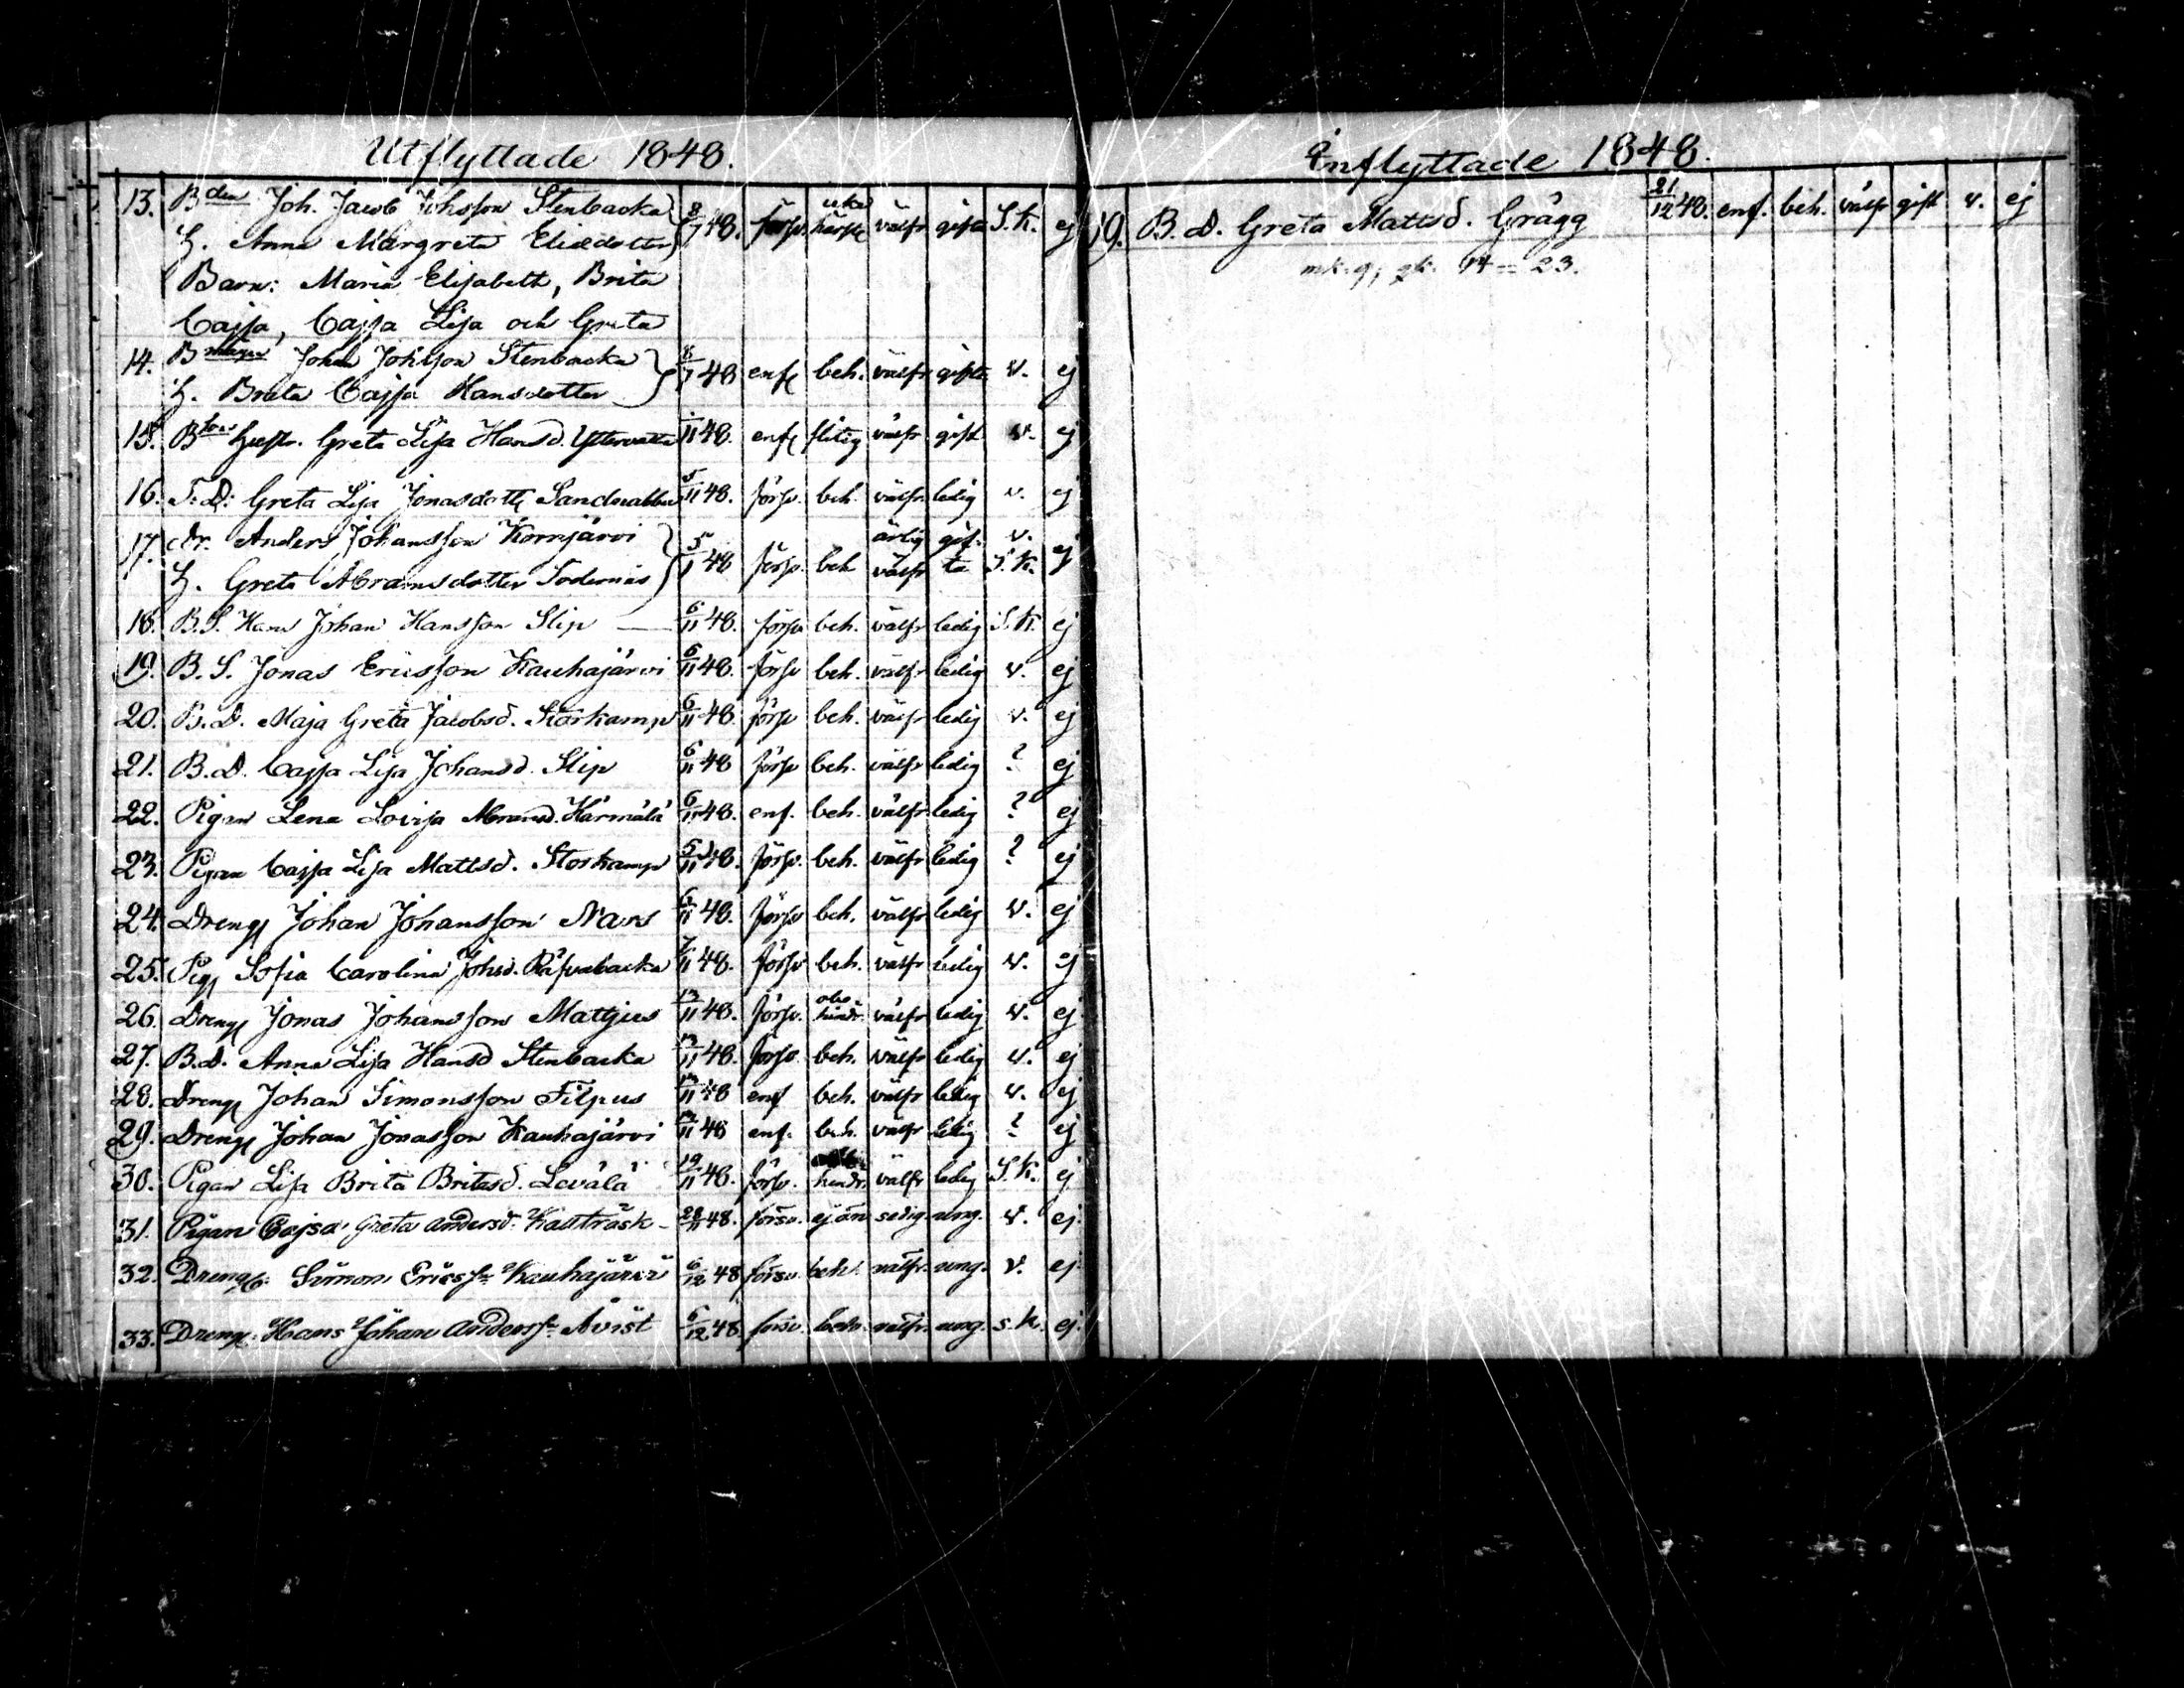 Utflyttade 1848.
13. Bden Joh. Jacob Johsson Stenbacka 8/7 48. försv. välfr gifta S.K. ej
H. Anna Margreta Eliædotter
Barn: Maria Elisabeth, Brita
Cajsa, Cajsa Lisa och Greta
14. B Johan Johsson Stenbacka 8/7 48 enf beh. välfr gifta v. ej
H. Brita Cajsa Hansdotter
15. Hustr. Greta Lisa Hansd. 48. enf flitig välfr gift v. ej
16. T.D. Greta Lisa Jonasdottr 5/11 48. försv. beh. välfr. ledig v. ej
17. Dr. Anders Johansson Kornjärvi 48 försv. beh ärlig gif- v. ej
H. Greta Abramsdotter Södernäs välfr ta S.K.
18. B.S. Hans Johan Hansson Slip 6/11 48. försv beh. välfr ledig S.K. ej
19. B.S. Jonas Ericsson Kauhajärvi 6/11 48. försv beh. välfr ledig v. ej
20. B.D. Maja Greta Jacobsd. Storkamp 6/11 48. försv beh. välfr ledig v. ej
21. B.D. Cajsa Lisa Johansd. Slip 6/11 48 försv beh. välfr ledig ? ej
22. Pigan Lena Lovisa Abramsd. Härmälä 6/11 48. enf. beh. välfr ledig ? ej
23. Pigan Cajsa Lisa Mattsd. Storkamp 6/11 48. försv. beh. välfr ledig ? ej
24. Dreng Johan Johansson Nars 6/11 48. försv beh. välfr ledig v. ej
25. Pig Sofia Carolina Johsd. Räfvabacka 7/11 48. försv beh. välfr ledig v. ej
26. Dreng Jonas Johansson Mattjus 13/11 48. försv. obehindr. välfr ledig v. ej
27. B.D. Anna Lisa Hansd Stenbacka 13/11 48. försv beh. välfr ledig v. ej
28. Dreng Johan Simonsson Filpus 13/11 48 enf beh. välfr ledig v. ej
29. Dreng Johan Jonasson Kauhajärvi 13/11 48 enf. beh. välfr ledig ? ej
30. Pigan Lisa Brita Britasd. Levälä 19/11 48. försv. hindr. välfr ledig S.K. ej
31. Pigan Cajsa Greta Andersd. Kallträsk 28/11 48. försv. ej än sedig. ung. v. ej.
32. Dreng Simon Ericss: Kauhajärvi 6/12 48 försv. beh. välfr. ung. v. ej
33. Dreng Hans Johan Anderss: Åvist 6/12 48 försv. beh. välfr. ung. s.k. ej.
Inflyttade 1848.
19. B.D. Greta Mattsd. Grägg 21/12 48. enf. beh. välfr gift v. ej
mk. 9; qk. 14 = 23.